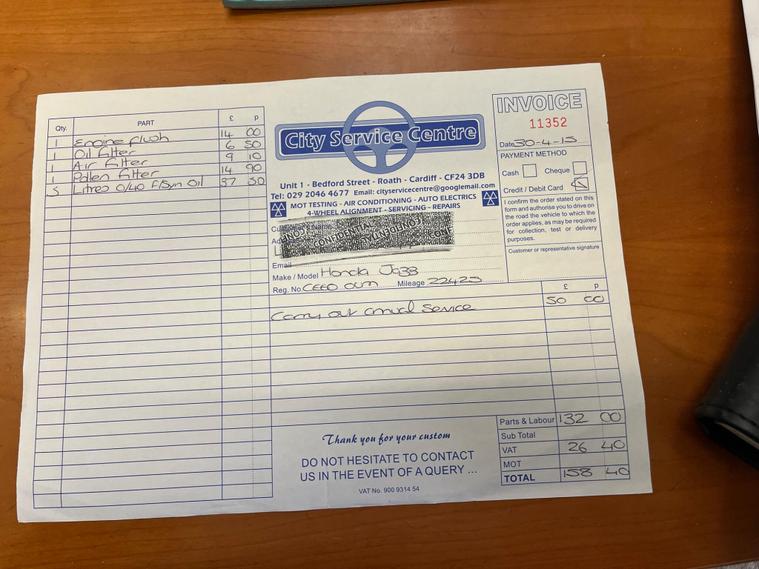 INVOICE
11352
City Service Centre
Unit 1 - Bedford Street - Roath - Cardiff - CF24 3DB
Tel: 029 2046 4677 Email: cityservicecentre@googlemail.com
MOT TESTING - AIR CONDITIONING - AUTO ELECTRICS
4-WHEEL ALIGNMENT - SERVICING - REPAIRS
Date 30-4-15
PAYMENT METHOD
Cash Cheque
Credit / Debit Card
I confirm the order stated on this
form and authorise you to drive on
the road the vehicle to which the
order applies, as may be required
for collection, test or delivery
purposes.
Customer or representative signature
Qty. PART £ p
1 Engine flush 14 00
1 Oil filter 6 50
1 Air filter 9 10
1 Pollen filter 14 90
5 Litres 0/40 F/Syn Oil 37 50
Email
Make / Model Honda Jazz
Reg. No Mileage 22425
£ p
Carry out annual Service 50 00
Parts & Labour 132 00
Sub Total
VAT 26 40
MOT
TOTAL 158 40
Thank you for your custom
DO NOT HESITATE TO CONTACT
US IN THE EVENT OF A QUERY ...
VAT No. 900 9314 54